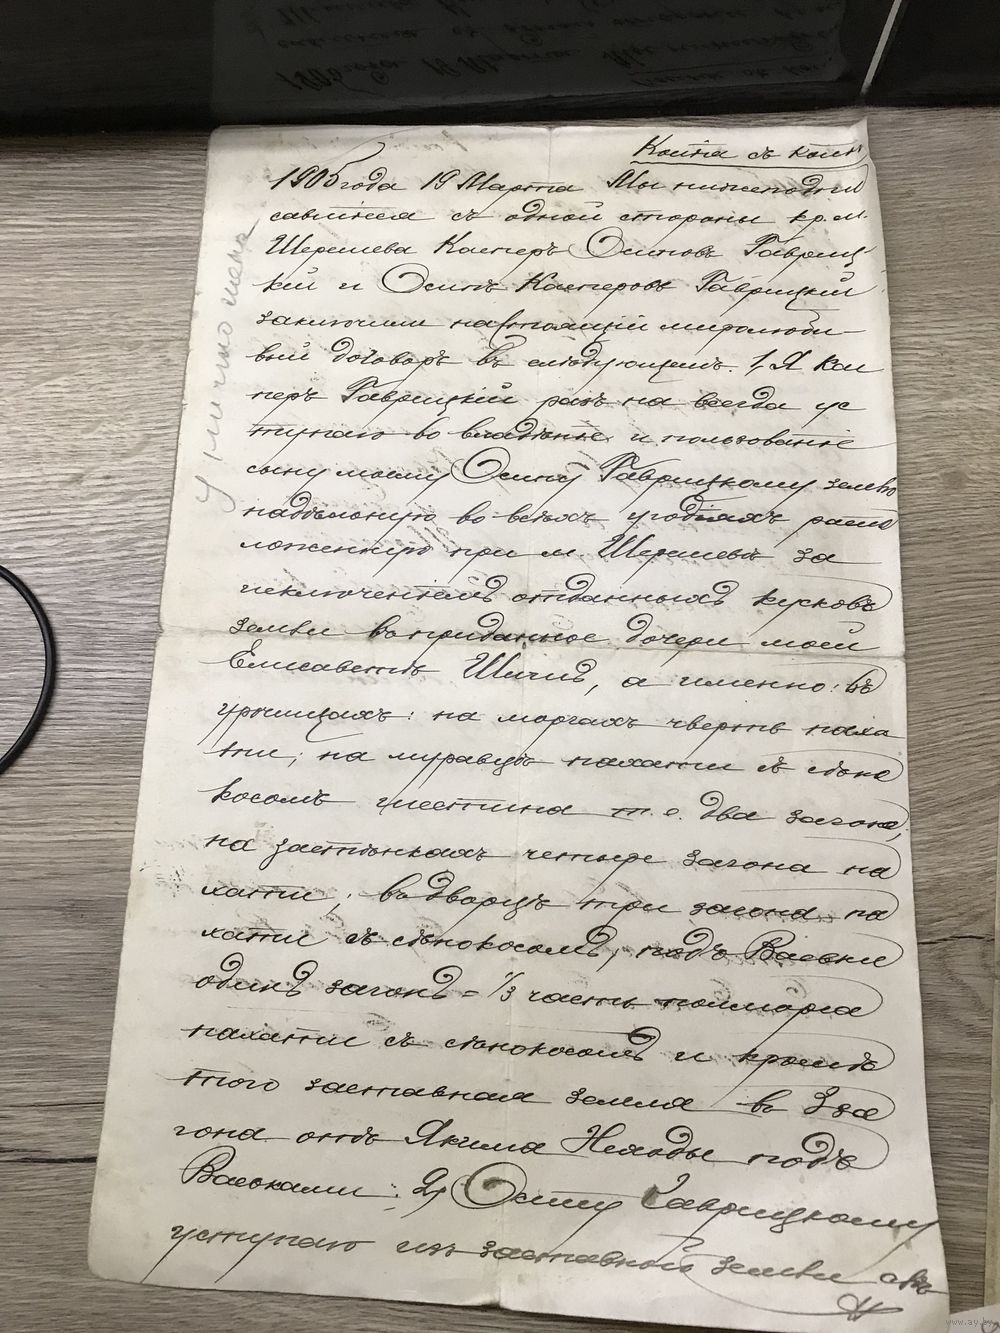 Копія съ копіи
1905 года 19 Марта Мы нижеподпи
савшіеся съ одной стороны кр. м.
Шерешева Касперъ Осиповъ Гавриц
кій и Осипъ Касперовъ Гаврицкій
заключили настоящій миролюби
вый договоръ въ слѣдующемъ. 1, Я Кас
перъ Гаврицкій разъ на всегда ус
тупаю во владѣніе и пользованіе
сыну моему Осипу Гаврицкому землю
надѣльную во всѣхъ угодіяхъ распо
ложенную при м. Шерешевѣ за
исключеніемъ отданныхъ кусковъ
земли въ приданное дочери моей
Елисаветѣ, а именно: въ
урочищахъ: на моргахъ чверть паха
ти; на муравцѣ пахати съ сѣно
косомъ шестина т. е. два загона,
на застѣнкахъ четыре загона па
хати; въ дворцѣ три загона па
хати съ сѣнокосомъ; подъ
одинъ загонъ = 1/3 часть полморга
пахати съ сѣнокосомъ и кромѣ
того заставная земля въ 3 за
гона отъ Якима подъ
2, Осипу Гаврицкому
уступаю изъ заставной земли
www.ay.by